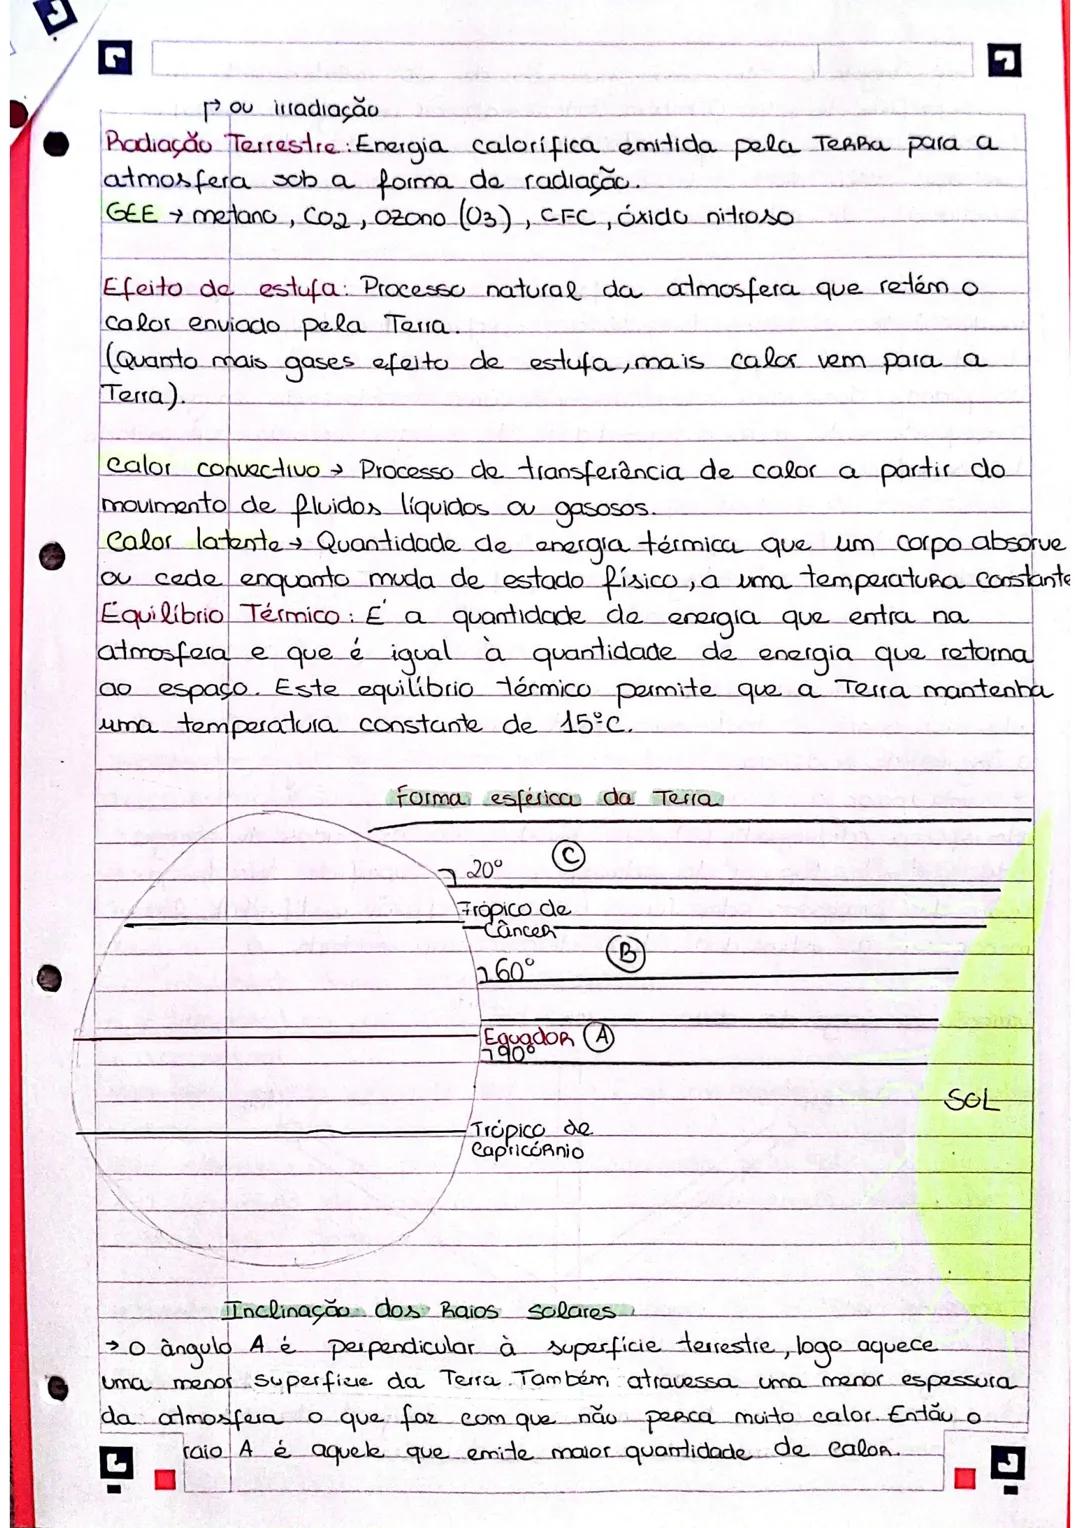 ↱ ou irradiação
Radiação Terrestre: Energia calorífica emitida pela Terra para a
atmosfera sob a forma de radiação.
GEE → metano, CO2, Ozono (O3), CFC, óxido nitroso
Efeito de estufa: Processo natural da atmosfera que retém o
calor enviado pela Terra.
(Quanto mais gases efeito de estufa, mais calor vem para a
Terra).
Calor convectivo → Processo de transferência de calor a partir do
movimento de fluidos líquidos ou gasosos.
Calor latente → Quantidade de energia térmica que um corpo absorve
ou cede enquanto muda de estado físico, a uma temperatura constante
Equilíbrio Térmico: É a quantidade de energia que entra na
atmosfera e que é igual à quantidade de energia que retorna
ao espaço. Este equilíbrio térmico permite que a Terra mantenha
uma temperatura constante de 15ºC.
Forma esférica da Terra
20º C
Trópico de
Câncer
60º B
Equador A
90º
SOL
Trópico de
Capricórnio
Inclinação dos Raios Solares
→ O ângulo A é perpendicular à superfície terrestre, logo aquece
uma menor superfície da Terra. Também atravessa uma menor espessura
da atmosfera o que faz com que não perca muito calor. Então o
raio A é aquele que emite maior quantidade de calor.